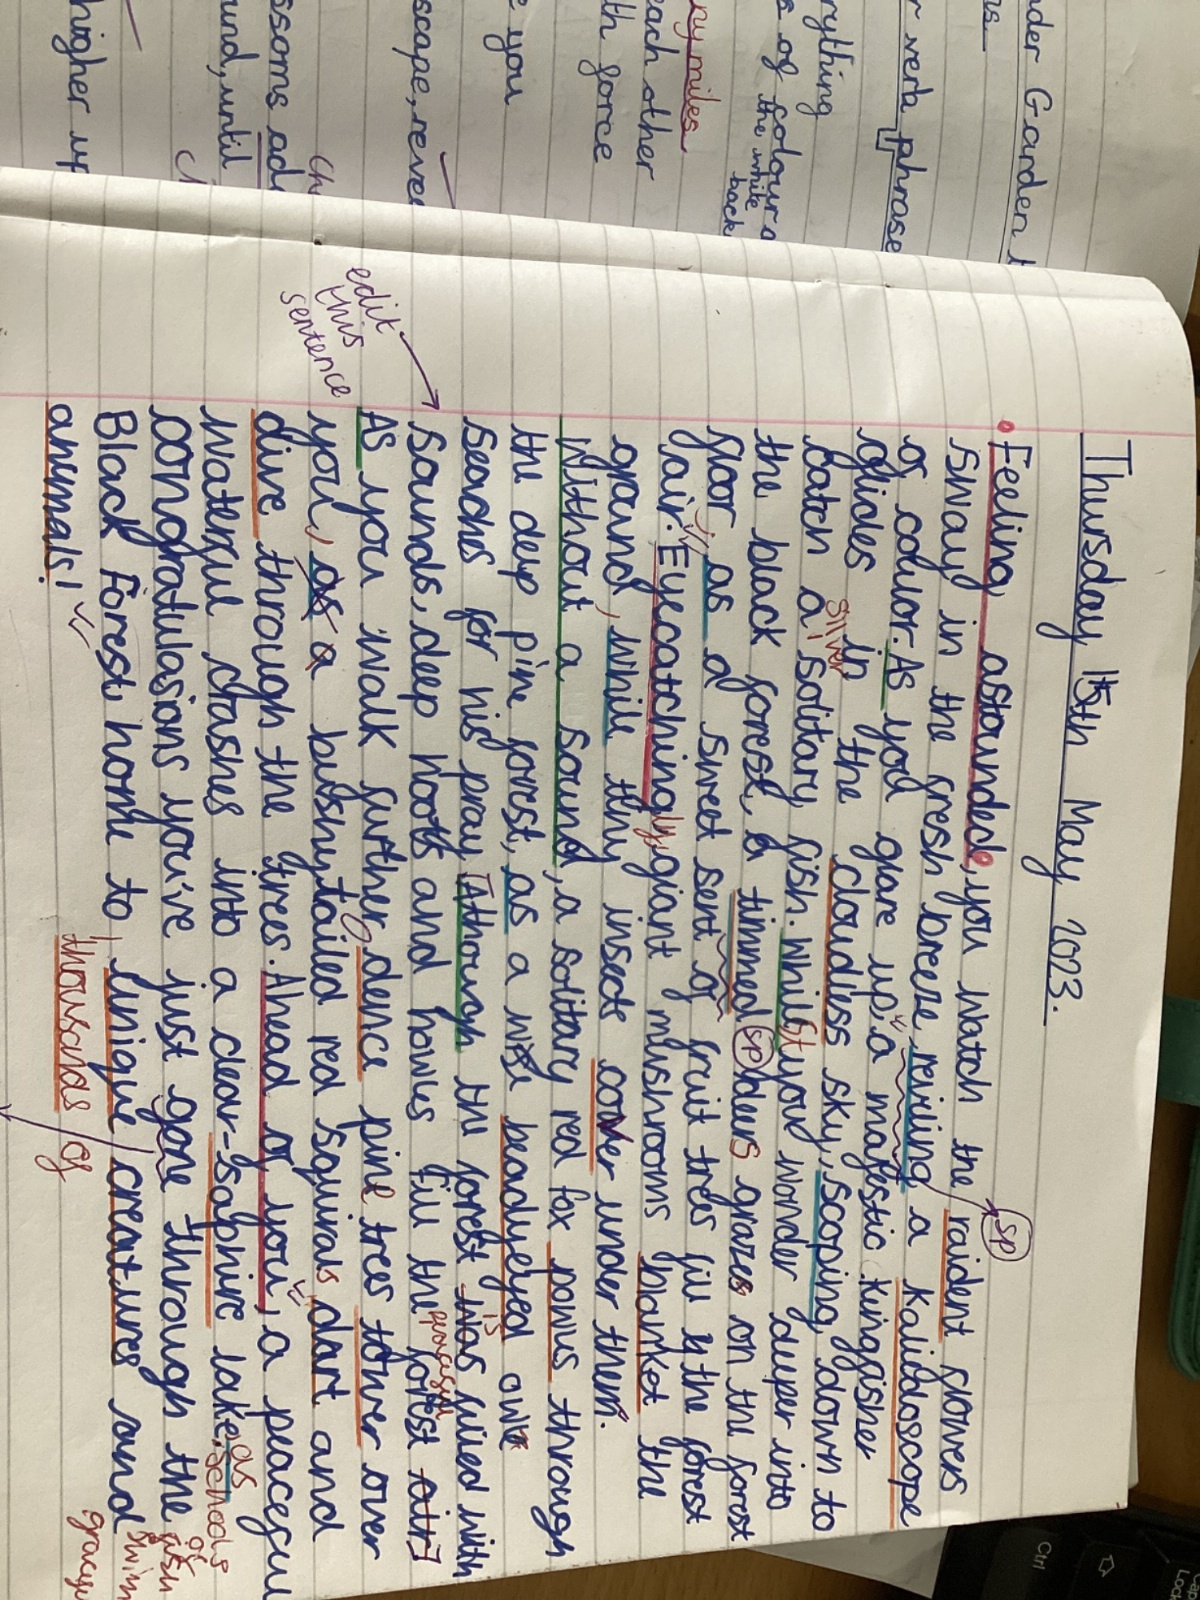 nder Garden
ns
r verb phrase
rything
s of colour a
the white
back
ny miles
each other
th force
e you
scape, revea
Ch
ssoms ad
und, until
higher up
Thursday 15th May 2023.
Feeling astounded, you watch the raident flowers
sp
sway in the fresh breeze, reviling a kaliedoscope
of colour. As you glare up, a majestic kingfisher
glides in the cloudless sky, scoping, down to
silver
catch a solitary fish. Whilst you wonder deeper into
the black forest, a timmed sp deers grazes on the forest
floor, as a sweet sent of fruit trees fill y the forest
fair. Eyecatchingly, giant mushrooms blanket the
ground, while tiny insects cower under them.
Without a sound, a solitary red fox powls through
the deep pine forest, as a wise beadyeyed owl
is
seaches for his pray. [Athough the forest was filled with
edit
this
sentence
peaceful
sounds, deep hoots and howls fill the forest air]
As you walk further, dence pine trees tower over
you, as a bushytailed red squirals dart and
dive through the trees. Ahead of you, a peaceful
waterful chashes into a clear-saphire lake, as
schools
of
fish
swim
gracefu
congratulasions you've just gone through the
Black Forest home to unique creatures and
thousands of
animals!
Ctrl
Caps
Lock